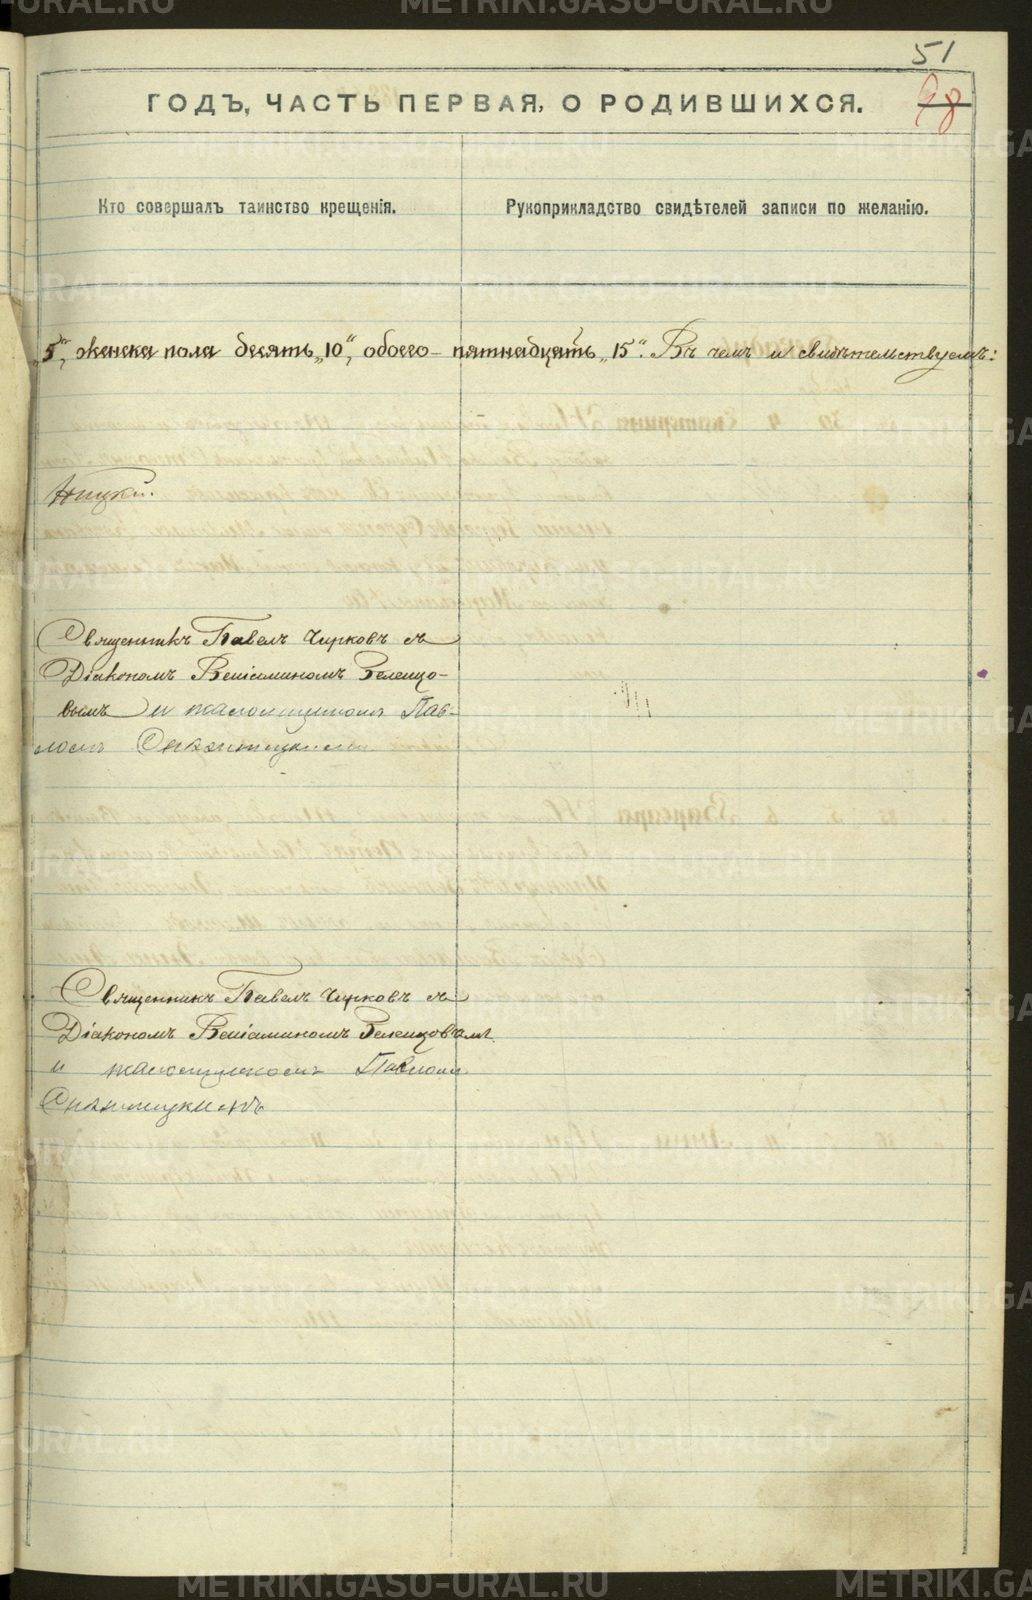 51
98
ГОДЪ, ЧАСТЬ ПЕРВАЯ, О РОДИВШИХСЯ.
Кто совершалъ таинство крещенія.
Рукоприкладство свидѣтелей записи по желанію.
„5“, женска пола десять „10“, обоего пятнадцать „15“. Въ чемъ и свидѣтельствуемъ:
Священникъ Павелъ Чирковъ съ
Діакономъ Веніаминомъ Зеленцо-
вымъ и псаломщикомъ Пав-
ломъ
Священникъ Павелъ Чирковъ съ
Діакономъ Веніаминомъ Зеленцовымъ
и псаломщикомъ Павломъ
METRIKI.GASO-URAL.RU